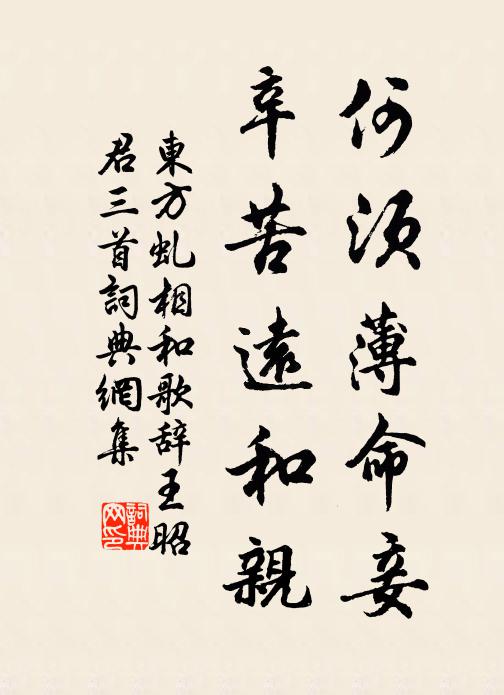 何須薄命妾
辛苦遠和親
東方虬相和歌辞王昭
君三首詞典網集
詞典
网印